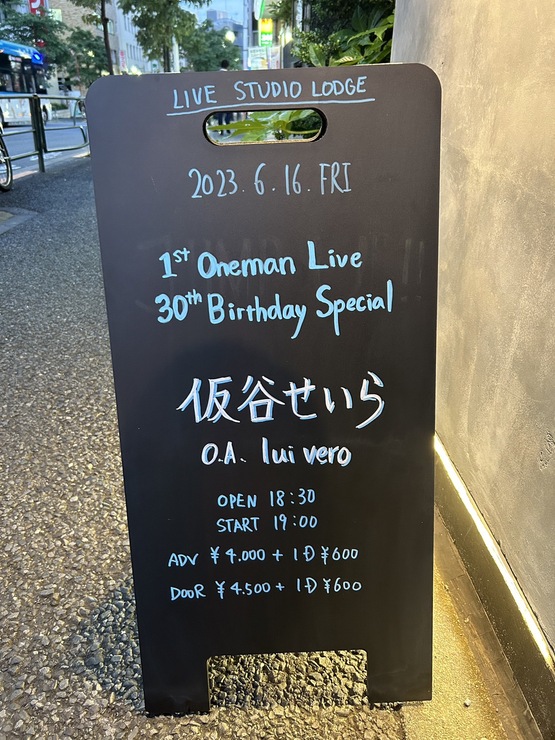 LIVE STUDIO LODGE
2023.6.16.FRI
1st Oneman Live
30th Birthday Special
仮谷せいら
O.A. lui vero
OPEN 18:30
START 19:00
ADV ¥4.000 + 1D ¥600
DOOR ¥4.500 + 1D ¥600